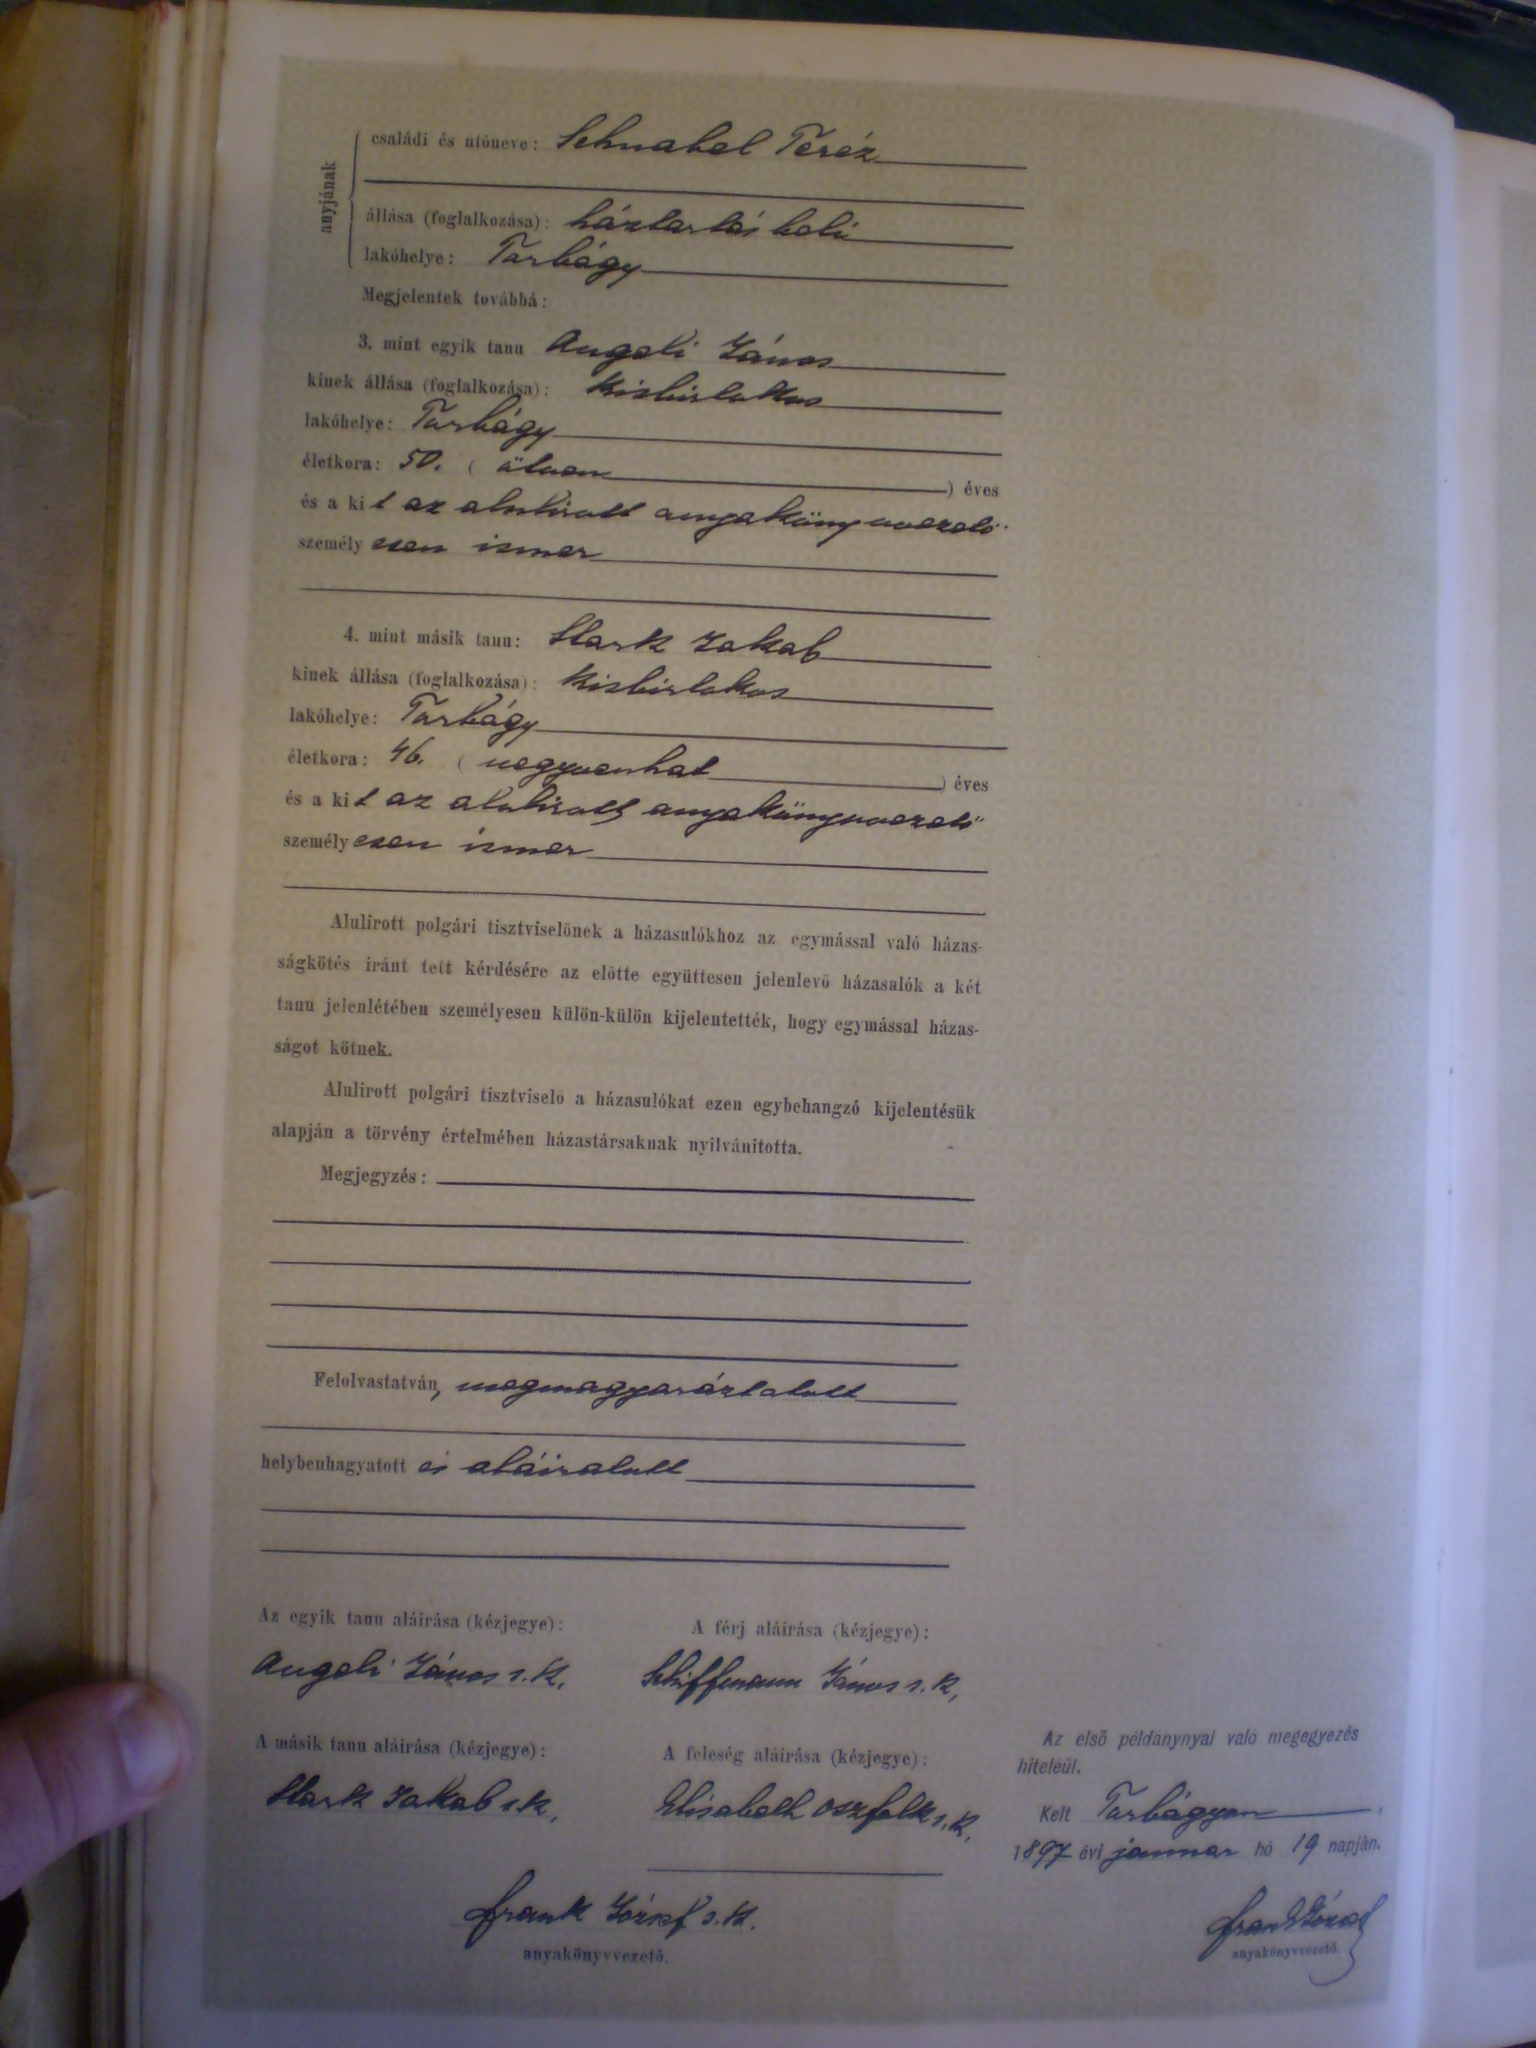 anyjának
családi és utóneve: Schnabel Teréz
állása (foglalkozása): háztartásbeli
lakóhelye: Torbágy
Megjelentek továbbá:
3. mint egyik tanu Angeli János
kinek állása (foglalkozása): kisbirtokos
lakóhelye: Torbágy
életkora: 50. (ötven) éves
és a kit az alulirott anyakönyvvezető
személyesen ismer
4. mint másik tanu: Stark Jakab
kinek állása (foglalkozása): kisbirtokos
lakóhelye: Torbágy
életkora: 46. (negyvenhat) éves
és a kit az alulirott anyakönyvvezető
személyesen ismer
Alulirott polgári tisztviselőnek a házasulókhoz az egymással való házas-
ságkötés iránt tett kérdésére az előtte együttesen jelenlevő házasulók a két
tanu jelenlétében személyesen külön-külön kijelentették, hogy egymással házas-
ságot kötnek.
Alulirott polgári tisztviselő a házasulókat ezen egybehangzó kijelentésük
alapján a törvény értelmében házastársaknak nyilvánitotta.
Megjegyzés:
Felolvastatván, megmagyaráztatott
helybenhagyatott és aláiratott
Az egyik tanu aláirása (kézjegye): A férj aláirása (kézjegye):
Angeli János s. k. Schiffmann János s. k.,
A másik tanu aláirása (kézjegye): A feleség aláirása (kézjegye):
Stark Jakab s. k., Elisabeth Oszfolk s. k.
Frank József s. k.
anyakönyvvezető.
Az első példánynyal való megegyezés
hiteléül.
Kelt Torbágyon,
1897 évi januar hó 19 napján.
Frank József
anyakönyvvezető.